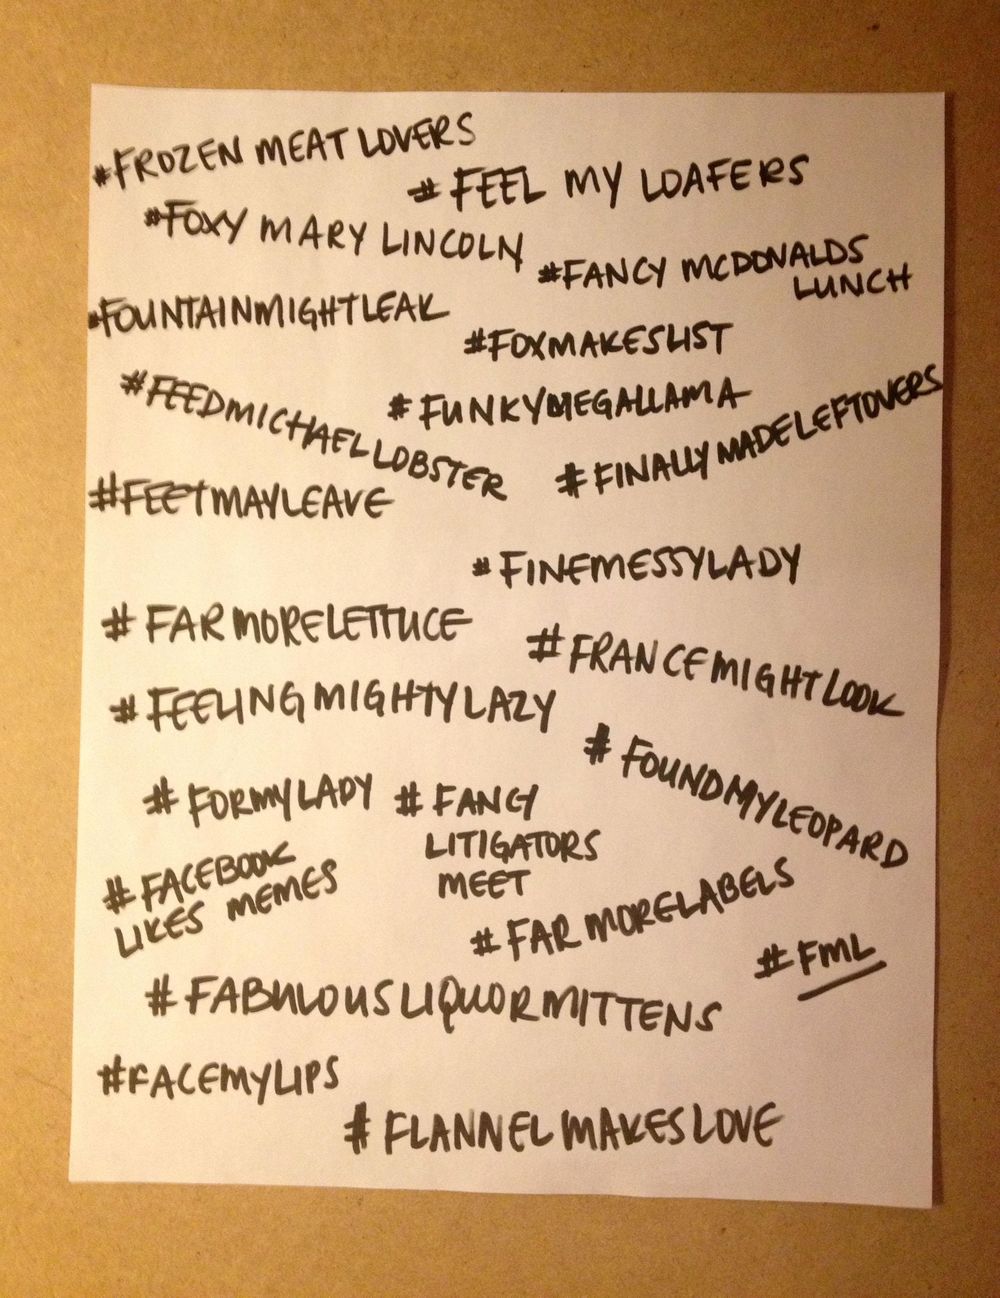 #FROZEN MEAT LOVERS
# FEEL MY LOAFERS
#FOXY MARY LINCOLN
#FANCY MCDONALDS
LUNCH
#FOUNTAINMIGHTLEAK
#FOXMAKESLIST
#FEEDMICHAELLOBSTER
#FUNKYMEGALLAMA
#FINALLYMADELEFTOVERS
#FEETMAYLEAVE
#FINEMESSYLADY
# FARMORELETTUCE
#FRANCEMIGHTLOOK
#FEELINGMIGHTYLAZY
# FOUNDMYLEOPARD
# FORMYLADY
# FANCY
LITIGATORS
MEET
# FACEBOOK
LIKES MEMES
# FARMORELABELS
#FML
# FABULOUSLIQUORMITTENS
#FACEMYLIPS
# FLANNELMAKESLOVE